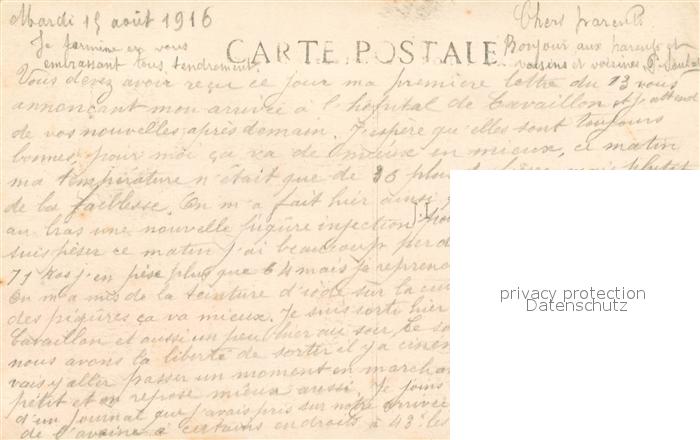 Mardi 15 août 1916
Chers parents
Je termine en vous
embrassant tous tendrement.
CARTE POSTALE
Bonjour aux parents et
voisins et voisines
Vous devez avoir reçu ce jour ma première lettre du 13 vous
annonçant mon arrivée à l'hôpital de Cavaillon et j'attend
de vos nouvelles après demain. J'espère qu'elles sont toujours
bonnes, pour moi ça va de mieux en mieux, ce matin
ma température n'était que de 36 plus de fièvre mais plutôt
de la faiblesse. On m'a fait hier ainsi
au bras une nouvelle piqûre injection
suis pèser ce matin j'ai beaucoup perd
71 Kos j'en pèse plus que 64 mais je reprend
On m'a mis de la teinture d'iode sur la cui
des piqûres ça va mieux. Je suis sorti hier
Cavaillon et aussi un peu hier au soir. Ce so
nous avons la liberté de sortir il y a ciném
vais y aller passer un moment en marchan
petit et on repose mieux aussi. Je joins
d'un journal que j'avais pris sur notre arrivée
de l'avoine à certains endroits à 43f les
privacy protection
Datenschutz